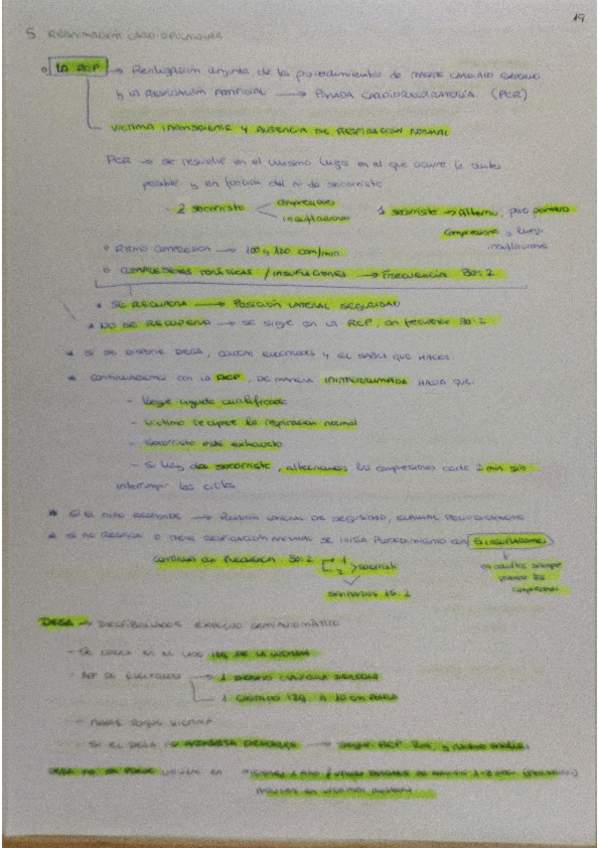 19
5 REANIMACIÓN CARDIOPULMONAR
LA RCP → Realización conjunta de los procedimientos de MASAJE CARDIACO EXTERNO
y LA RESPIRACIÓN ARTIFICIAL → PARADA CARDIORESPIRATORIA. (PCR)
VICTIMA INCONSCIENTE Y AUSENCIA DE RESPIRACIÓN NORMAL
PCR → se resuelve en el mismo lugar en el que ocurre lo antes
posible y en función del nº de socorristas
- 2 socorristas compresiones
insuflaciones
1 socorrista → Alterna, pero primero
compresiones y luego
insuflaciones
RITMO COMPRESIÓN → 100 y 120 com/min
COMPRESIONES TORÁCICAS / INSUFLACIONES → FRECUENCIA 30:2
SE RECUPERA → POSICIÓN LATERAL SEGURIDAD
NO SE RECUPERA → se sigue con la RCP, con frecuencia 30:2
SI SE DISPONE DESA, COLOCAR ELECTRODOS Y EL SABRÁ QUE HACER.
CONTINUAREMOS CON LA RCP, DE MANERA ININTERRUMPIDA HASTA QUE:
- llegue ayuda cualificada
- Víctima recupere la respiración normal
- Socorrista esté exhausto
- Si hay dos socorristas, alternamos las compresiones cada 2 min sin
interrumpir los ciclos
SI EL NIÑO RESPONDE → POSICIÓN LATERAL DE SEGURIDAD, EVALUAR PERIÓDICAMENTE
SI NO RESPIRA O TIENE RESPIRACIÓN ANORMAL SE INICIA PROCEDIMIENTO CON 5 INSUFLACIONES
continua con frecuencia 30:2 1 socorrista
2
en adultos siempre
primero las
compresiones
sanitarios 15:2
DESA → DESFIBRILADOR EXTERNO SEMIAUTOMÁTICO
- SE COLOCA EN EL LADO IZQ DE LA VICTIMA
ELECTRODOS → 1 DEBAJO CLAVÍCULA DERECHA
1 COSTADO IZQ. A 10 cm AXILA
- NADIE TOQUE VICTIMA
- SI EL DESA NO ACONSEJA DESCARGA → seguir RCP 2min
DESA NO SE PUEDE UTILIZAR EN